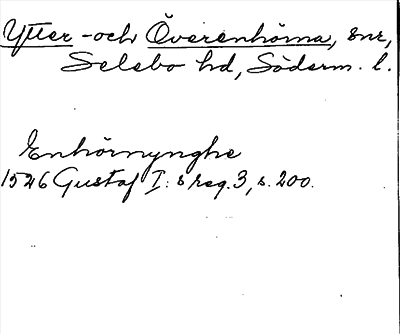 Ytter- och Överenhörna, snr,
Selebo hd, Söderm. l.
Enhörnynghe
1526 Gustaf I:s reg. 3, s. 200.